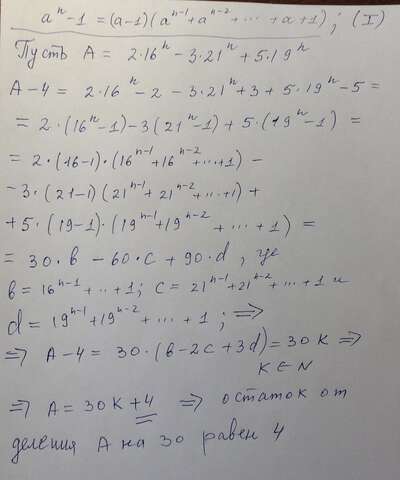 aⁿ-1 = (a-1)(aⁿ⁻¹+aⁿ⁻²+ ... +a+1); (I)
Пусть A = 2·16ⁿ-3·21ⁿ+5·19ⁿ
A-4 = 2·16ⁿ-2-3·21ⁿ+3+5·19ⁿ-5 =
= 2·(16ⁿ-1)-3(21ⁿ-1)+5·(19ⁿ-1) =
= 2·(16-1)·(16ⁿ⁻¹+16ⁿ⁻²+...+1) -
-3·(21-1)(21ⁿ⁻¹+21ⁿ⁻²+...+1) +
+5·(19-1)·(19ⁿ⁻¹+19ⁿ⁻²+ ... +1) =
= 30·b - 60·c + 90·d, где
b = 16ⁿ⁻¹+..+1; c = 21ⁿ⁻¹+21ⁿ⁻²+...+1 и
d = 19ⁿ⁻¹+19ⁿ⁻²+ ... +1; ⇒
⇒ A-4 = 30·(b-2c+3d) = 30k ⇒
k∈N
⇒ A = 30k+4 ⇒ остаток от
деления A на 30 равен 4